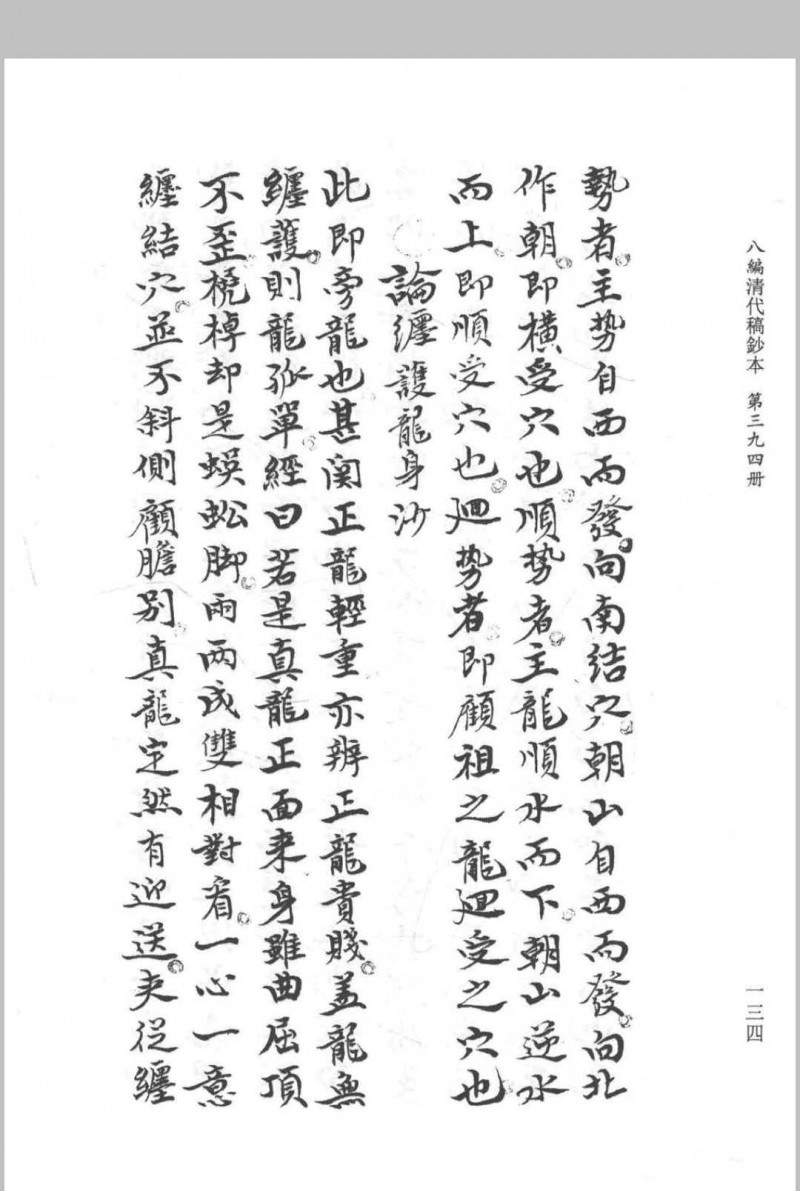 八編清代稿鈔本　第三九四册
一三四
勢者主势自西而發向南结穴朝山自西而發向北
作朝即横受穴也順势者主龍順水而下朝山逆水
而上即順受穴也廻势者即顧祖之龍廻受之穴也
論纒護龍身沙
此即旁龍也甚関正龍輕重亦辨正龍貴賤盖龍無
纒護則龍孤單經曰若是真龍正面来身雖曲屈項
不歪橈棹却是蜈蚣脚两两成雙相對看一心一意
纒結穴並不斜側顧瞻别真龍定然有迎送夹從纒